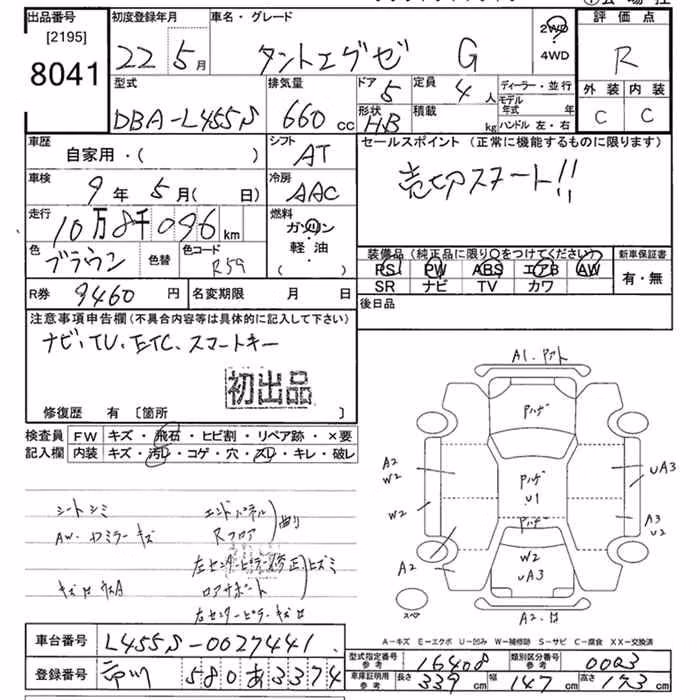 出品番号
[2195]
8041
初度登録年月
22 5月
車名・グレード
タントエグゼ G
2WD
4WD
評価点
R
外装 内装
C C
型式
DBA-L455S
排気量
660 cc
ドア 5
形状 HB
定員 4 人
積載 kg
ディーラー・並行
モデル年式 年
ハンドル 左・右
車歴
自家用・( )
シフト
AT
セールスポイント (正常に機能するものに限ります)
売切スマート!!
車検
9年 5月( 日)
冷房
AAC
走行
10万8千096km
燃料
ガソリン
軽・油
( ・ )
色
ブラウン
色替
色コード
R59
装備品(純正品に限り○をつけてください)
PS PW ABS エアB AW
SR ナビ TV カワ
新車保証書
有・無
R券 9460 円
名変期限 月 日
後日品
注意事項申告欄(不具合内容等は具体的に記入して下さい)
ナビ、TV、ETC、スマートキー
初出品
修復歴 有 〔箇所 〕
検査員
記入欄
FW キズ・飛石・ヒビ割・リペア跡・×要
内装 キズ・汚レ・コゲ・穴・スレ・キレ・破レ
シートシミ
AW・ドミラーキズ
エンドパネル
Rフロア
曲り
左センターピラー修正、ヒズミ
ロアサポート
左センターピラーキズ
A1・アト
Pハゲ
Pハゲ
U1
Pハゲ
W2
UA3
A2
W2
W2
A2
UA3
A3
U2
スペア
A-キズ E-エクボ U-凹み W-補修跡 S-サビ C-腐食 XX-交換済
車台番号 L455S-0027441
登録番号 580 あ 3374
型式指定番号 参考 16408
類別区分番号 参考 0003
車庫証明用 参考 長さ 339 cm 幅 147 cm 高さ 153 cm